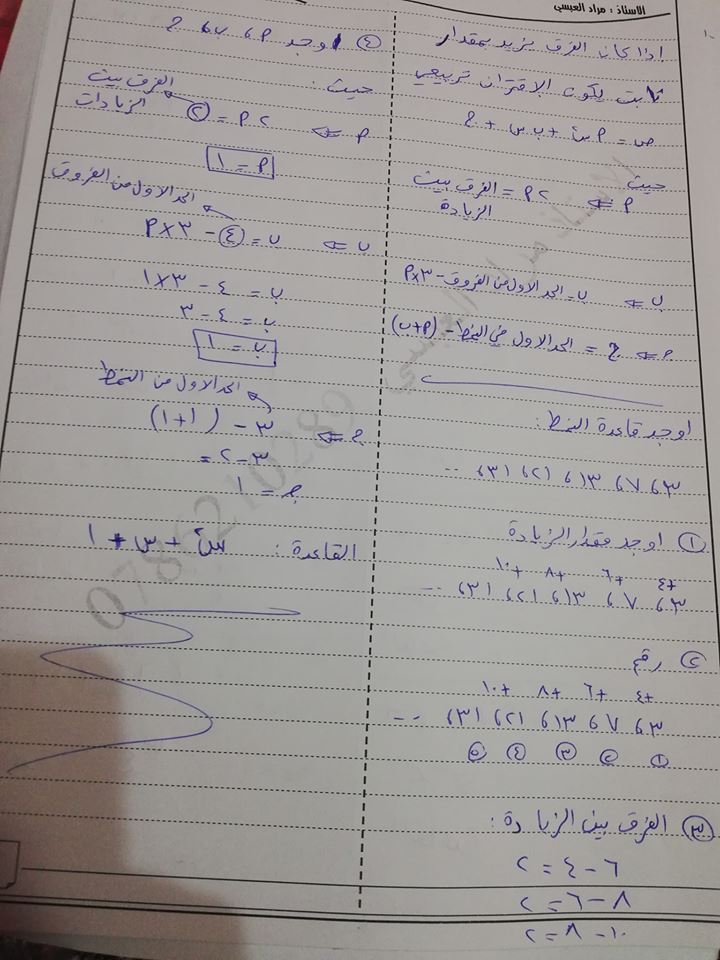 الاستاذ : مراد العبسي
اذا كان الفرق يزيد بمقدار
ثابت يكون الاقتران تربيعي
ص = ٢س٢ + ب س + جـ
حيث
٢ ⇐ ٢٢ = الفرق بين الزيادة
ب ⇐ ب = الحد الاول من الفروق - ٣×٢
جـ ⇐ جـ = الحد الاول في النمط - (٢+ب)
اوجد قاعدة النمط :
٣ ، ٧ ، ١٣ ، ٢١ ، ٣١ ، ...
① اوجد مقدار الزيادة
+٤ +٦ +٨ +١٠
٣ ، ٧ ، ١٣ ، ٢١ ، ٣١ ، ...
② رقم
+٤ +٦ +٨ +١٠
٣ ، ٧ ، ١٣ ، ٢١ ، ٣١ ، ...
① ② ③ ④ ⑤
③ الفرق بين الزيادة :
٦ - ٤ = ٢
٨ - ٦ = ٢
١٠ - ٨ = ٢
④ اوجد ٢ ، ب ، جـ
حيث :
الفرق بين الزيادات
٢ ⇐ ٢٢ = ②
٢ = ١
الحد الاول من الفروق
ب ⇐ ب = ④ - ٣×٢
ب = ٤ - ٣×١
ب = ٤ - ٣
ب = ١
الحد الاول من النمط
جـ ⇐ ٣ - (١+١)
= ٣ - ٢
جـ = ١
القاعدة : س٢ + س + ١
0786210289
الاستاذ مراد العبسي